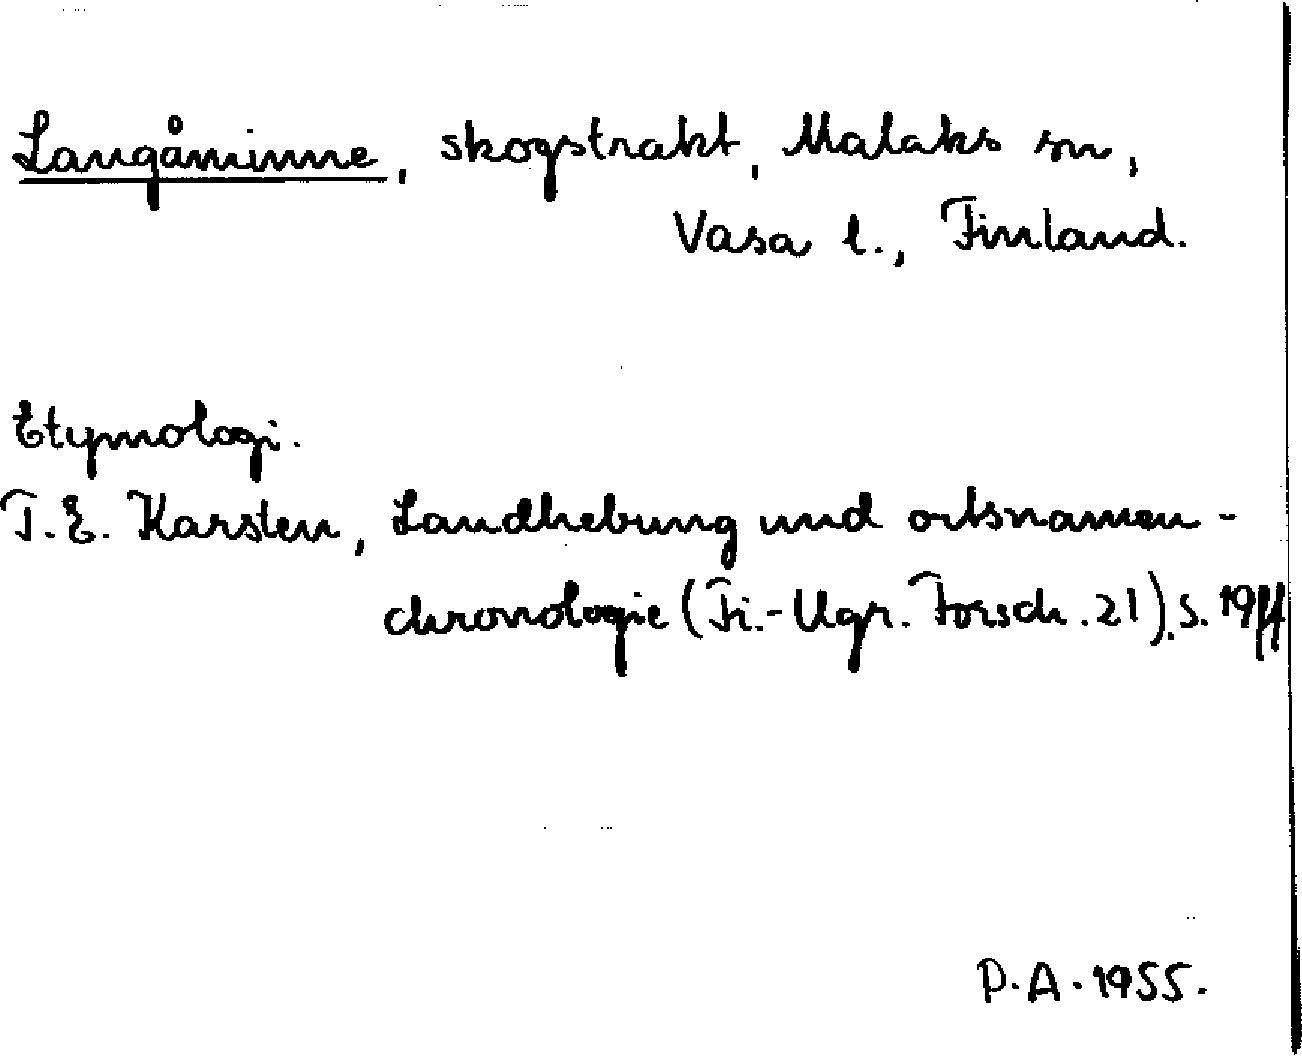 Langåminne, skogstrakt, Malaks sn,
Vasa l., Finland.
Etymologi.
T.E. Karsten, Landhebung und ortsnamen-
chronologie (Fi.-Ugr. Forsch. 21), s. 19ff
P.A. 1955.